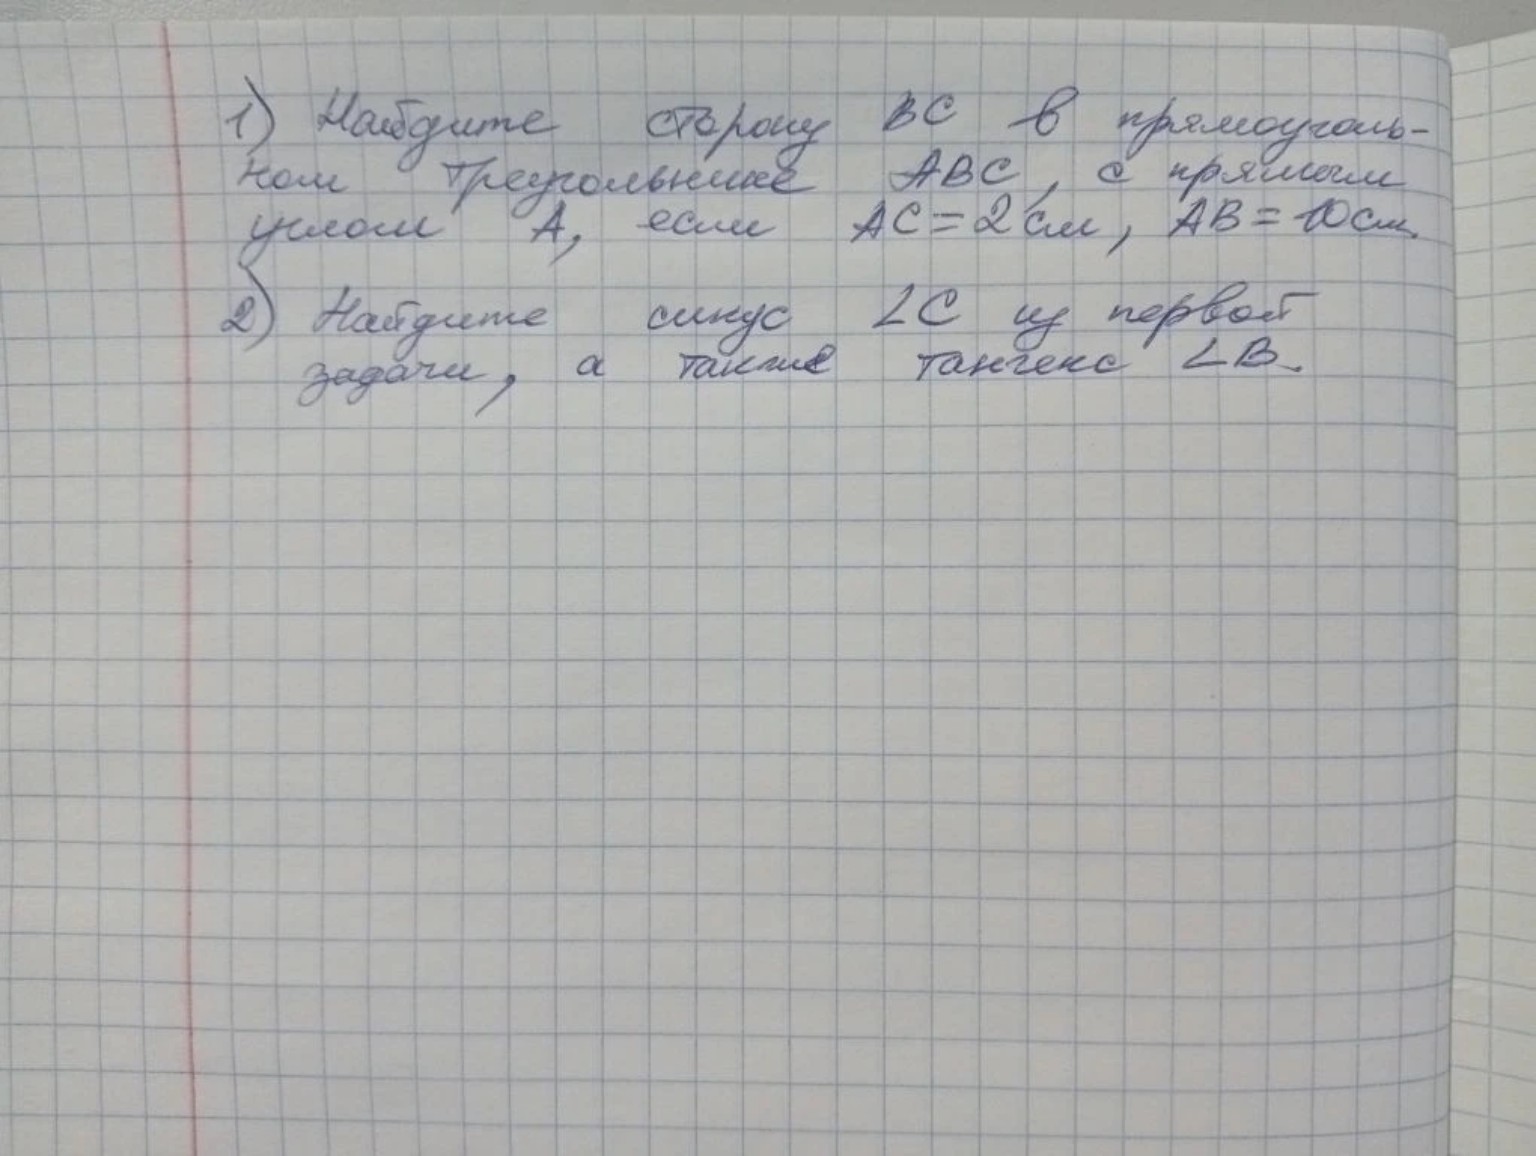 1) Найдите сторону BC в прямоуголь-
ном треугольнике ABC, с прямым
углом A, если AC = 2 см, AB = 10 см.
2) Найдите синус ∠C из первой
задачи, а также тангенс ∠B.